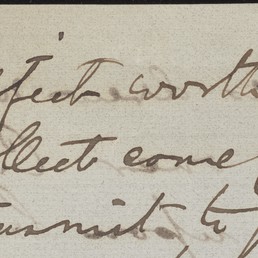 ffect worth
llect come
ransmit, to